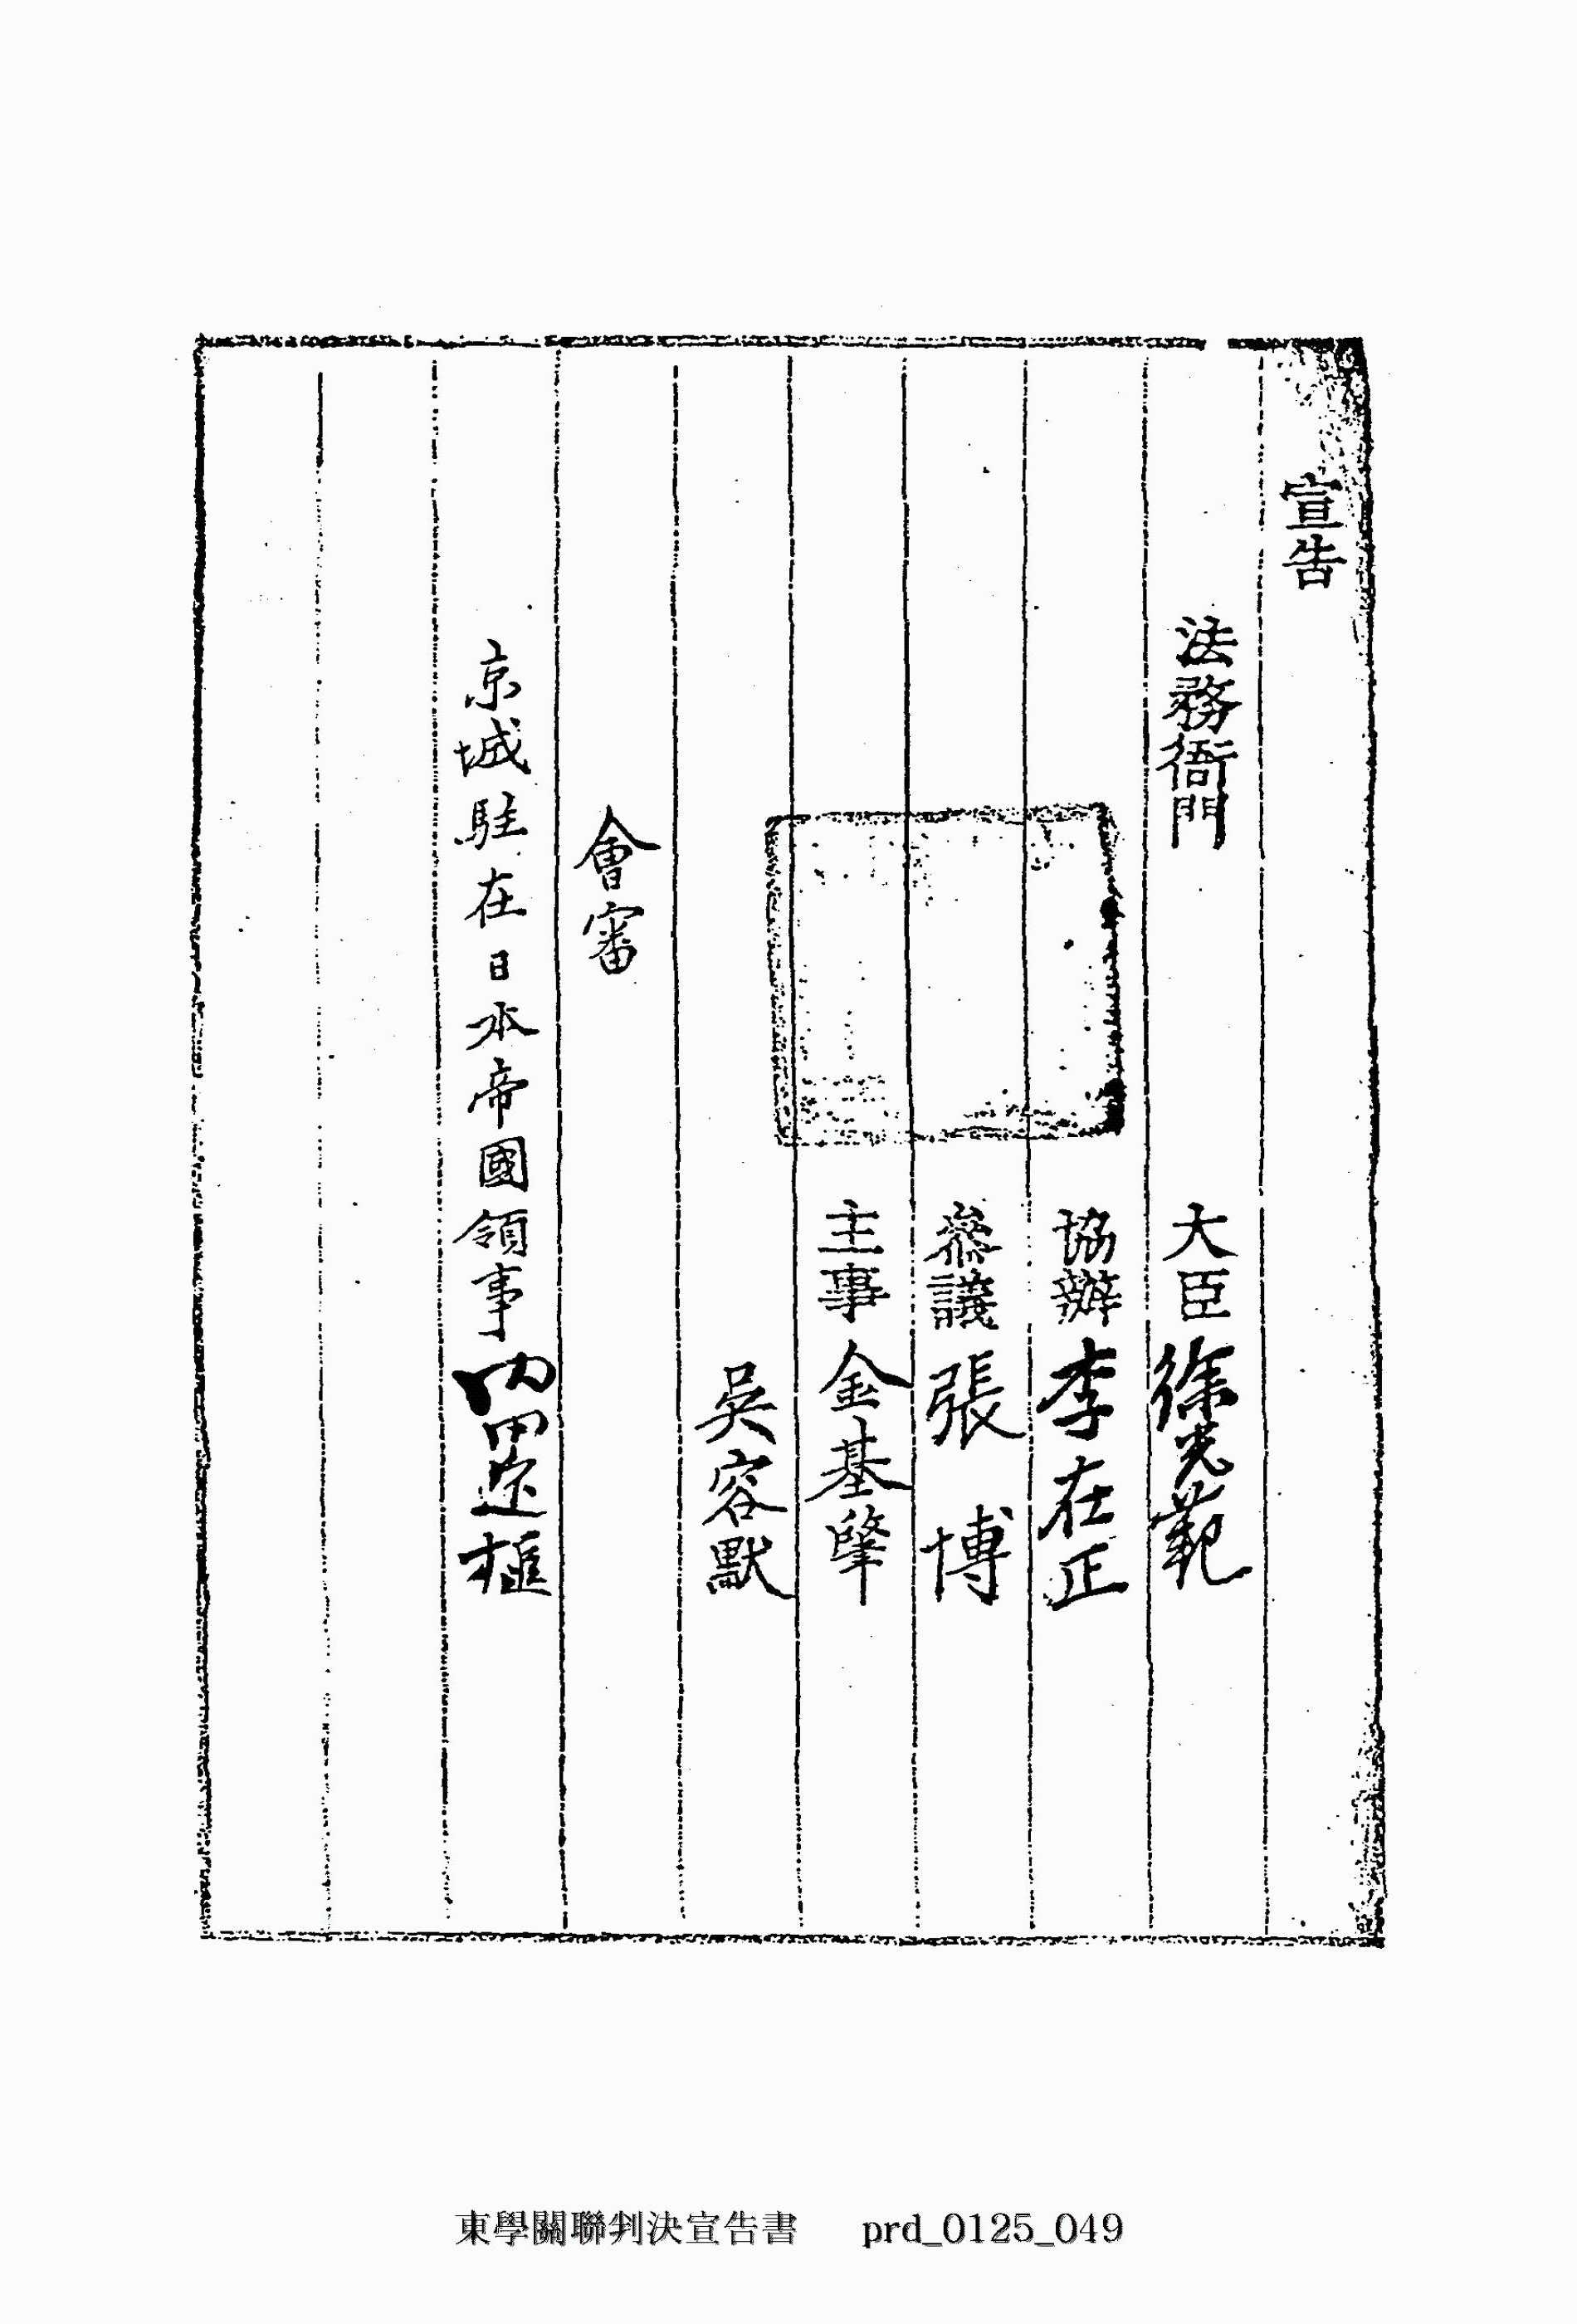 宣告
法務衙門 大臣 徐光範
協辦 李在正
叅議 張 博
主事 金基肇
吳容默
會審
京城駐在日本帝國領事 内田定槌
東學關聯判決宣告書 prd_0125_049